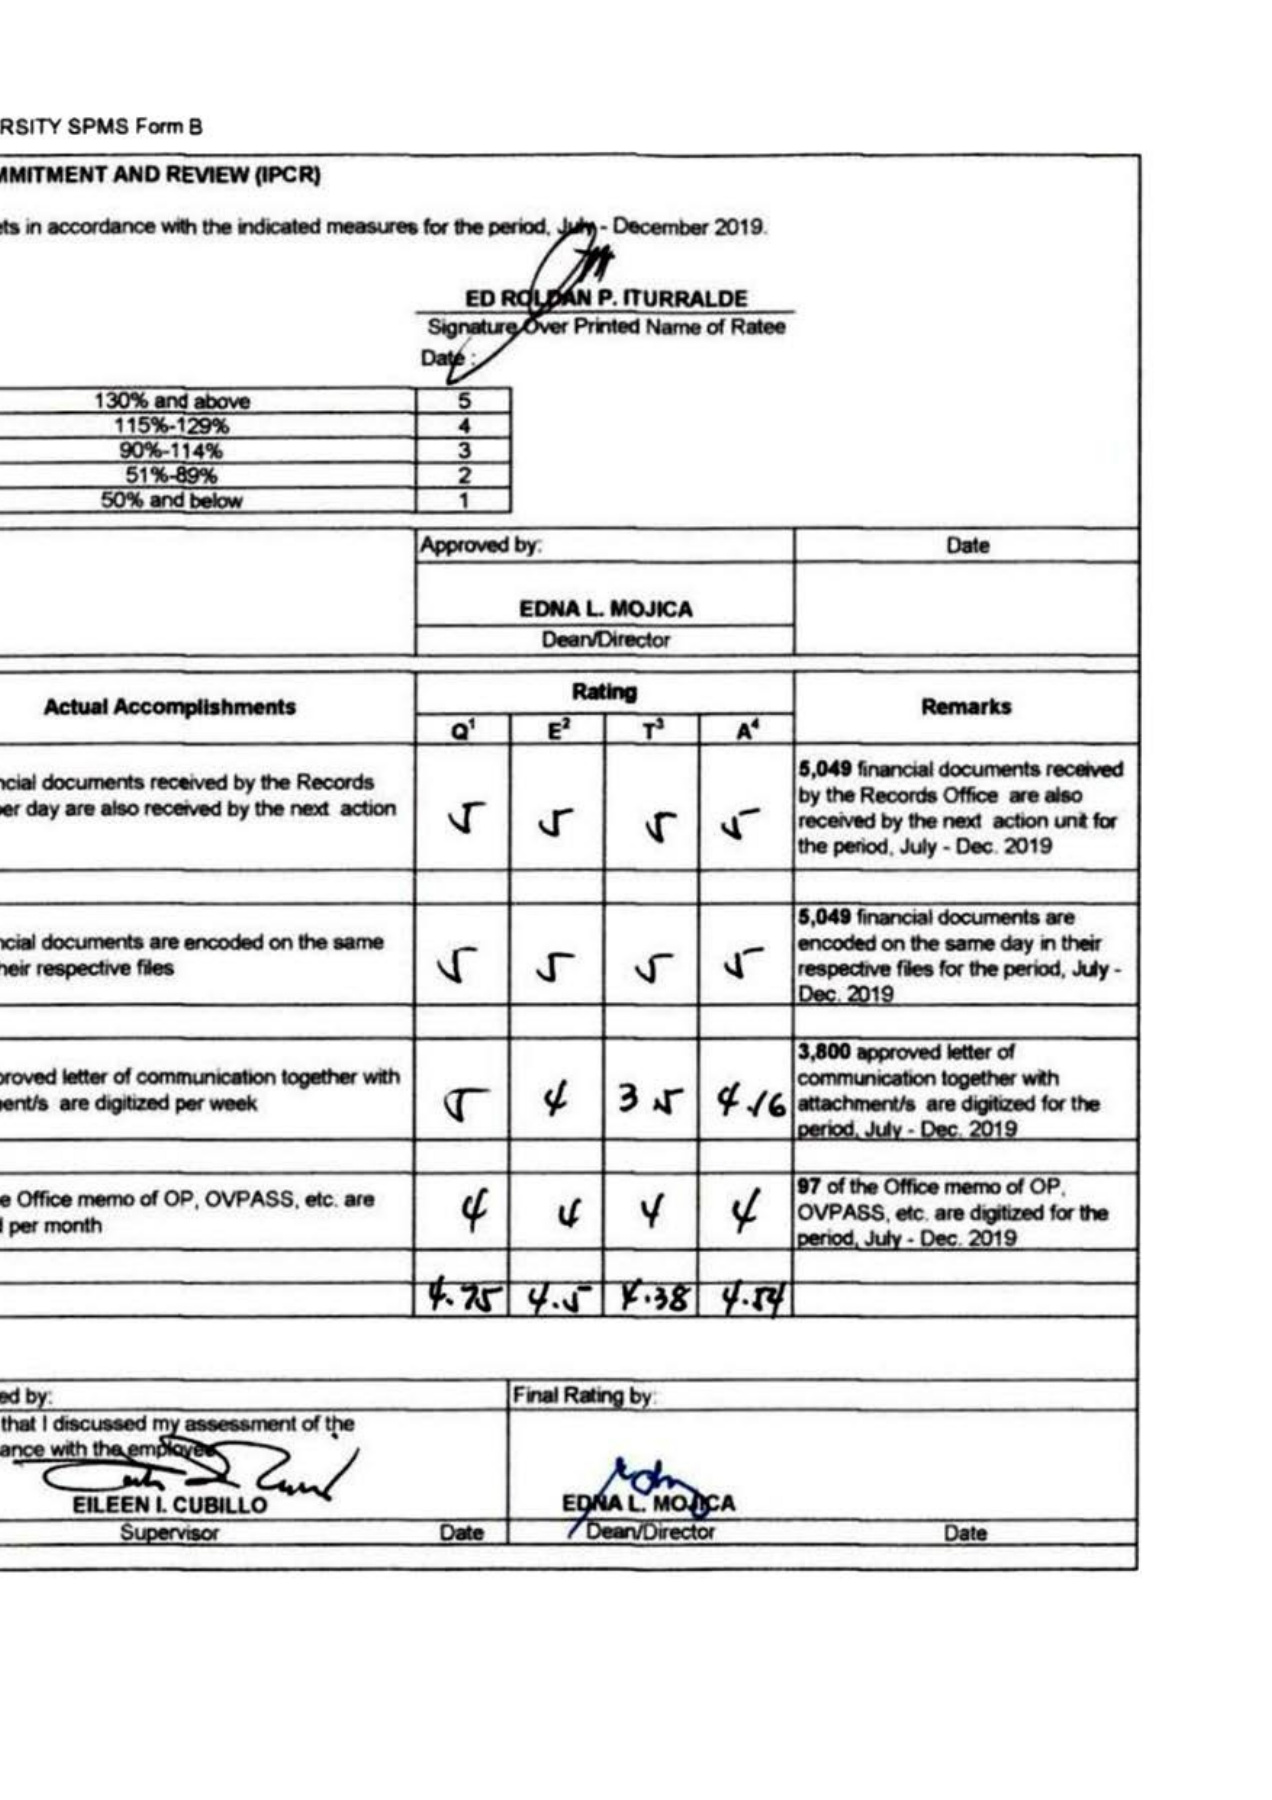 RSITY SPMS Form B
MMITMENT AND REVIEW (IPCR)
ets in accordance with the indicated measures for the period, July - December 2019.
ED ROLDAN P. ITURRALDE
Signature Over Printed Name of Ratee
Date :
130% and above 5
115%-129% 4
90%-114% 3
51%-89% 2
50% and below 1
Approved by: Date
EDNA L. MOJICA
Dean/Director
Actual Accomplishments Rating Remarks
Q¹ E² T³ A⁴
ncial documents received by the Records
er day are also received by the next action
5 5 5 5
5,049 financial documents received
by the Records Office are also
received by the next action unit for
the period, July - Dec. 2019
ncial documents are encoded on the same
heir respective files
5 5 5 5
5,049 financial documents are
encoded on the same day in their
respective files for the period, July -
Dec. 2019
proved letter of communication together with
ent/s are digitized per week
5 4 3.5 4.16
3,800 approved letter of
communication together with
attachment/s are digitized for the
period, July - Dec. 2019
e Office memo of OP, OVPASS, etc. are
per month
4 4 4 4
97 of the Office memo of OP,
OVPASS, etc. are digitized for the
period, July - Dec. 2019
4.75 4.5 4.38 4.54
ed by: Final Rating by:
that I discussed my assessment of the
ance with the employee
EILEEN I. CUBILLO EDNA L. MOJICA
Supervisor Date Dean/Director Date